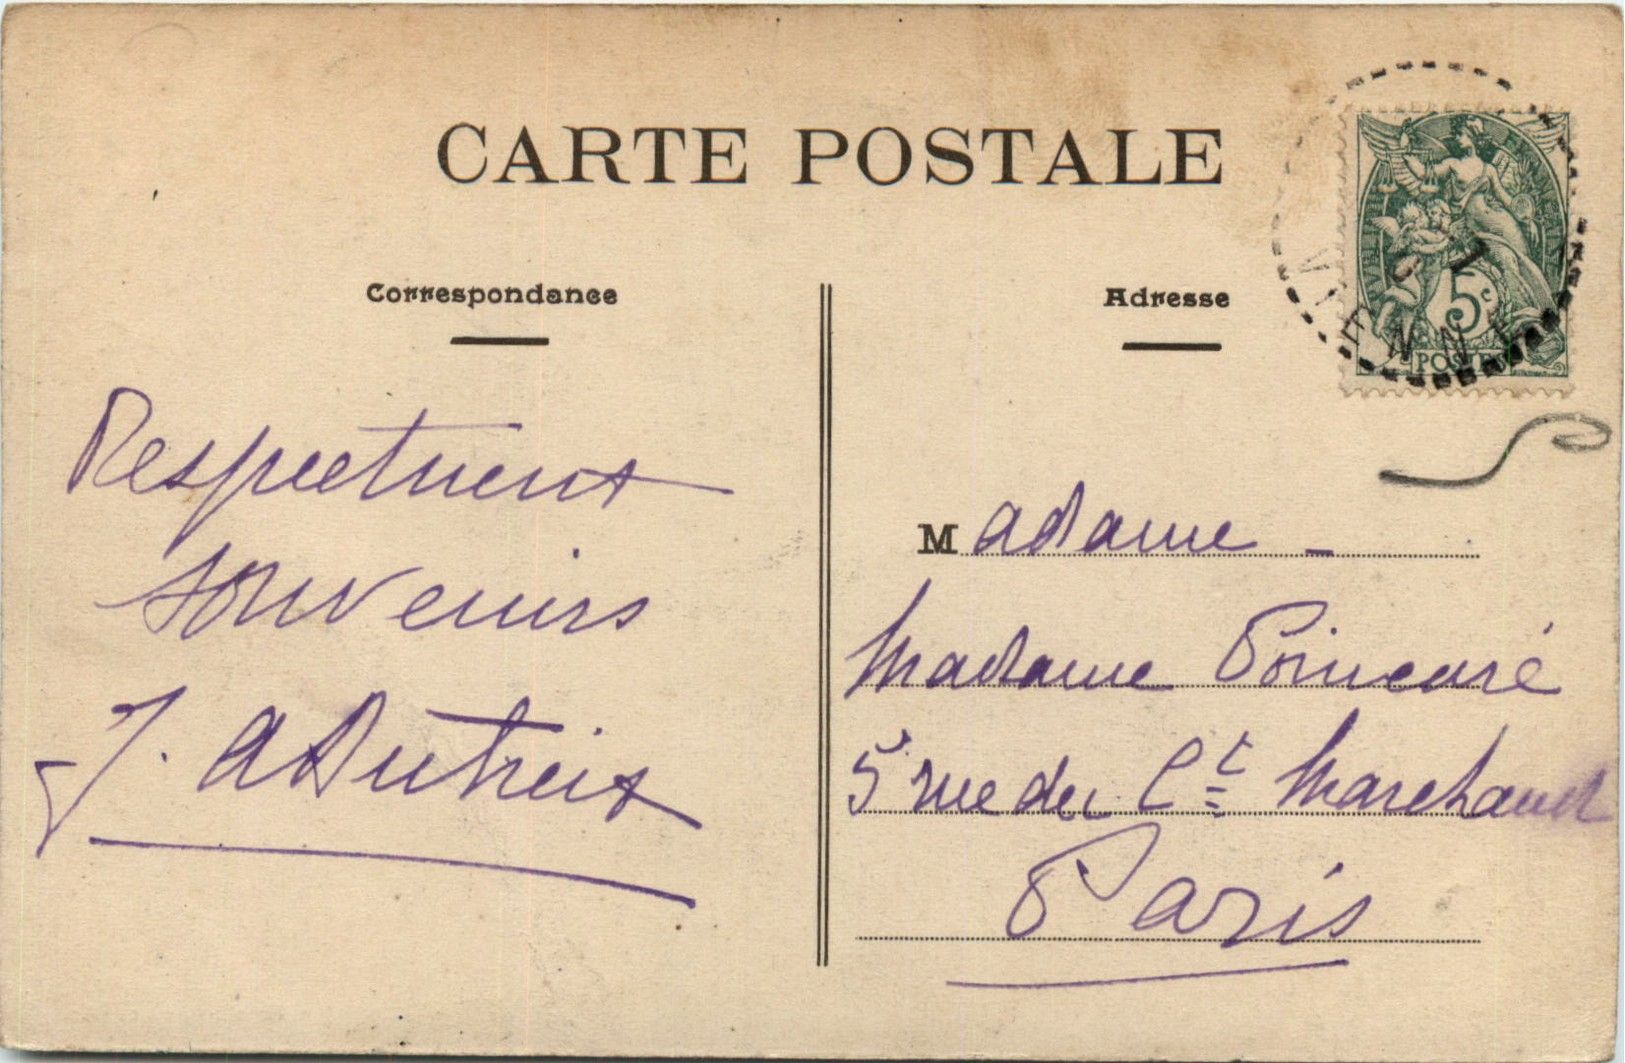 CARTE POSTALE
Correspondance
Respectueux
souvenirs
J. A Dutreix
Adresse
Madame -
Madame Poincaré
5 rue du Ct Marchand
Paris
5c
POSTES